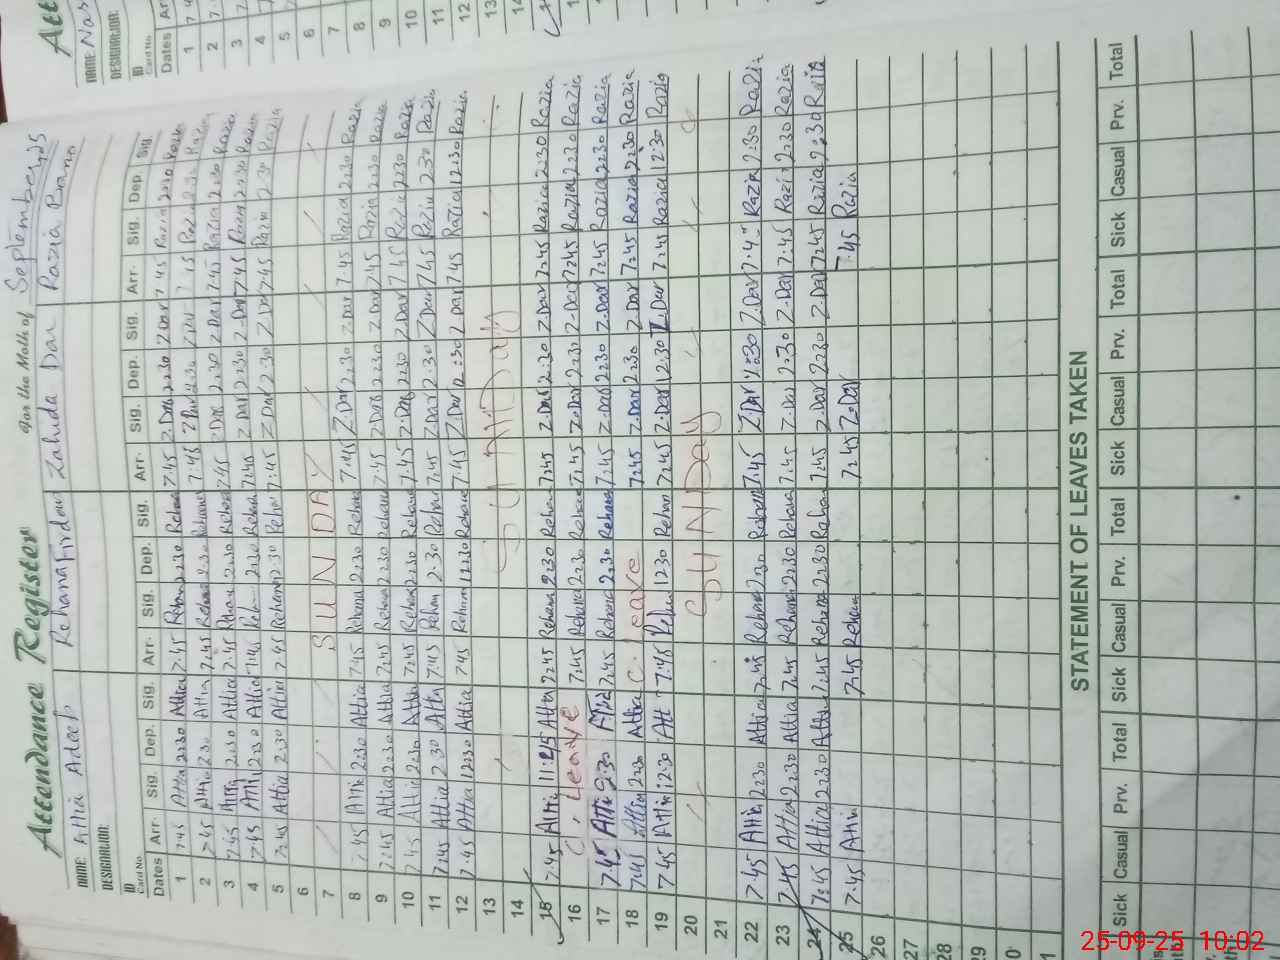 Attendance Register For the Month of September 25
NAME: Attia Adeeb Rehana Firdous Zahida Dar Razia Bano
DESIGNATION:
ID Card No.
Dates Arr. Sig. Dep. Sig. Arr. Sig. Dep. Sig. Arr. Sig. Dep. Sig. Arr. Sig. Dep. Sig.
1 7:45 Attia 2:30 Attia 7:45 Rehana 2:30 Rehana 7:45 Z.Dar 2:30 Z.Dar 7:45 Razia 2:30 Razia
2 7:45 Attia 2:30 Attia 7:45 Rehana 2:30 Rehana 7:45 Z.Dar 2:30 Z.Dar 7:45 Razia 2:30 Razia
3 7:45 Attia 2:30 Attia 7:45 Rehana 2:30 Rehana 7:45 Z.Dar 2:30 Z.Dar 7:45 Razia 2:30 Razia
4 7:45 Attia 2:30 Attia 7:45 Rehana 2:30 Rehana 7:45 Z.Dar 2:30 Z.Dar 7:45 Razia 2:30 Razia
5 7:45 Attia 2:30 Attia 7:45 Rehana 2:30 Rehana 7:45 Z.Dar 2:30 Z.Dar 7:45 Razia 2:30 Razia
6
7 SUNDAY
8 7:45 Attia 2:30 Attia 7:45 Rehana 2:30 Rehana 7:45 Z.Dar 2:30 Z.Dar 7:45 Razia 2:30 Razia
9 7:45 Attia 2:30 Attia 7:45 Rehana 2:30 Rehana 7:45 Z.Dar 2:30 Z.Dar 7:45 Razia 2:30 Razia
10 7:45 Attia 2:30 Attia 7:45 Rehana 2:30 Rehana 7:45 Z.Dar 2:30 Z.Dar 7:45 Razia 2:30 Razia
11 7:45 Attia 2:30 Attia 7:45 Rehan 2:30 Rehana 7:45 Z.Dar 2:30 Z.Dar 7:45 Razia 2:30 Razia
12 7:45 Attia 12:30 Attia 7:45 Rehana 12:30 Rehana 7:45 Z.Dar 12:30 Z.Dar 7:45 Razia 12:30 Razia
13
14 SUNDAY
15 7:45 Attia 11:45 Attia 7:45 Rehana 2:30 Rehana 7:45 Z.Dar 2:30 Z.Dar 7:45 Razia 2:30 Razia
16 C. Leave 7:45 Rehana 2:30 Rehana 7:45 Z.Dar 2:30 Z.Dar 7:45 Razia 2:30 Razia
17 7:45 Attia 2:30 Attia 7:45 Rehana 2:30 Rehana 7:45 Z.Dar 2:30 Z.Dar 7:45 Razia 2:30 Razia
18 7:45 Attia 2:30 Attia C. Leave 7:45 Z.Dar 2:30 Z.Dar 7:45 Razia 2:30 Razia
19 7:45 Attia 12:30 Att 7:45 Rehan 12:30 Rehan 7:45 Z.Dar 12:30 Z.Dar 7:45 Razia 12:30 Razia
20
21 SUNDay
22 7:45 Attia 2:30 Attia 7:45 Rehana 2:30 Rehana 7:45 Z.Dar 2:30 Z.Dar 7:45 Razia 2:30 Razia
23 7:45 Attia 2:30 Attia 7:45 Rehana 2:30 Rehana 7:45 Z.Dar 2:30 Z.Dar 7:45 Razia 2:30 Razia
24 7:45 Attia 2:30 Attia 7:45 Rehana 2:30 Rehana 7:45 Z.Dar 2:30 Z.Dar 7:45 Razia 2:30 Razia
25 7:45 Attia 7:45 Rehana 7:45 Z.Dar 7:45 Razia
26
27
28
29
STATEMENT OF LEAVES TAKEN
Sick Casual Prv. Total Sick Casual Prv. Total Sick Casual Prv. Total Sick Casual Prv. Total
NAME: Nas
DESIGNATION:
ID Card No.
Dates
1
2
3
4
5
6
7
8
9
10
11
12
13
14
25-09-25 10:02